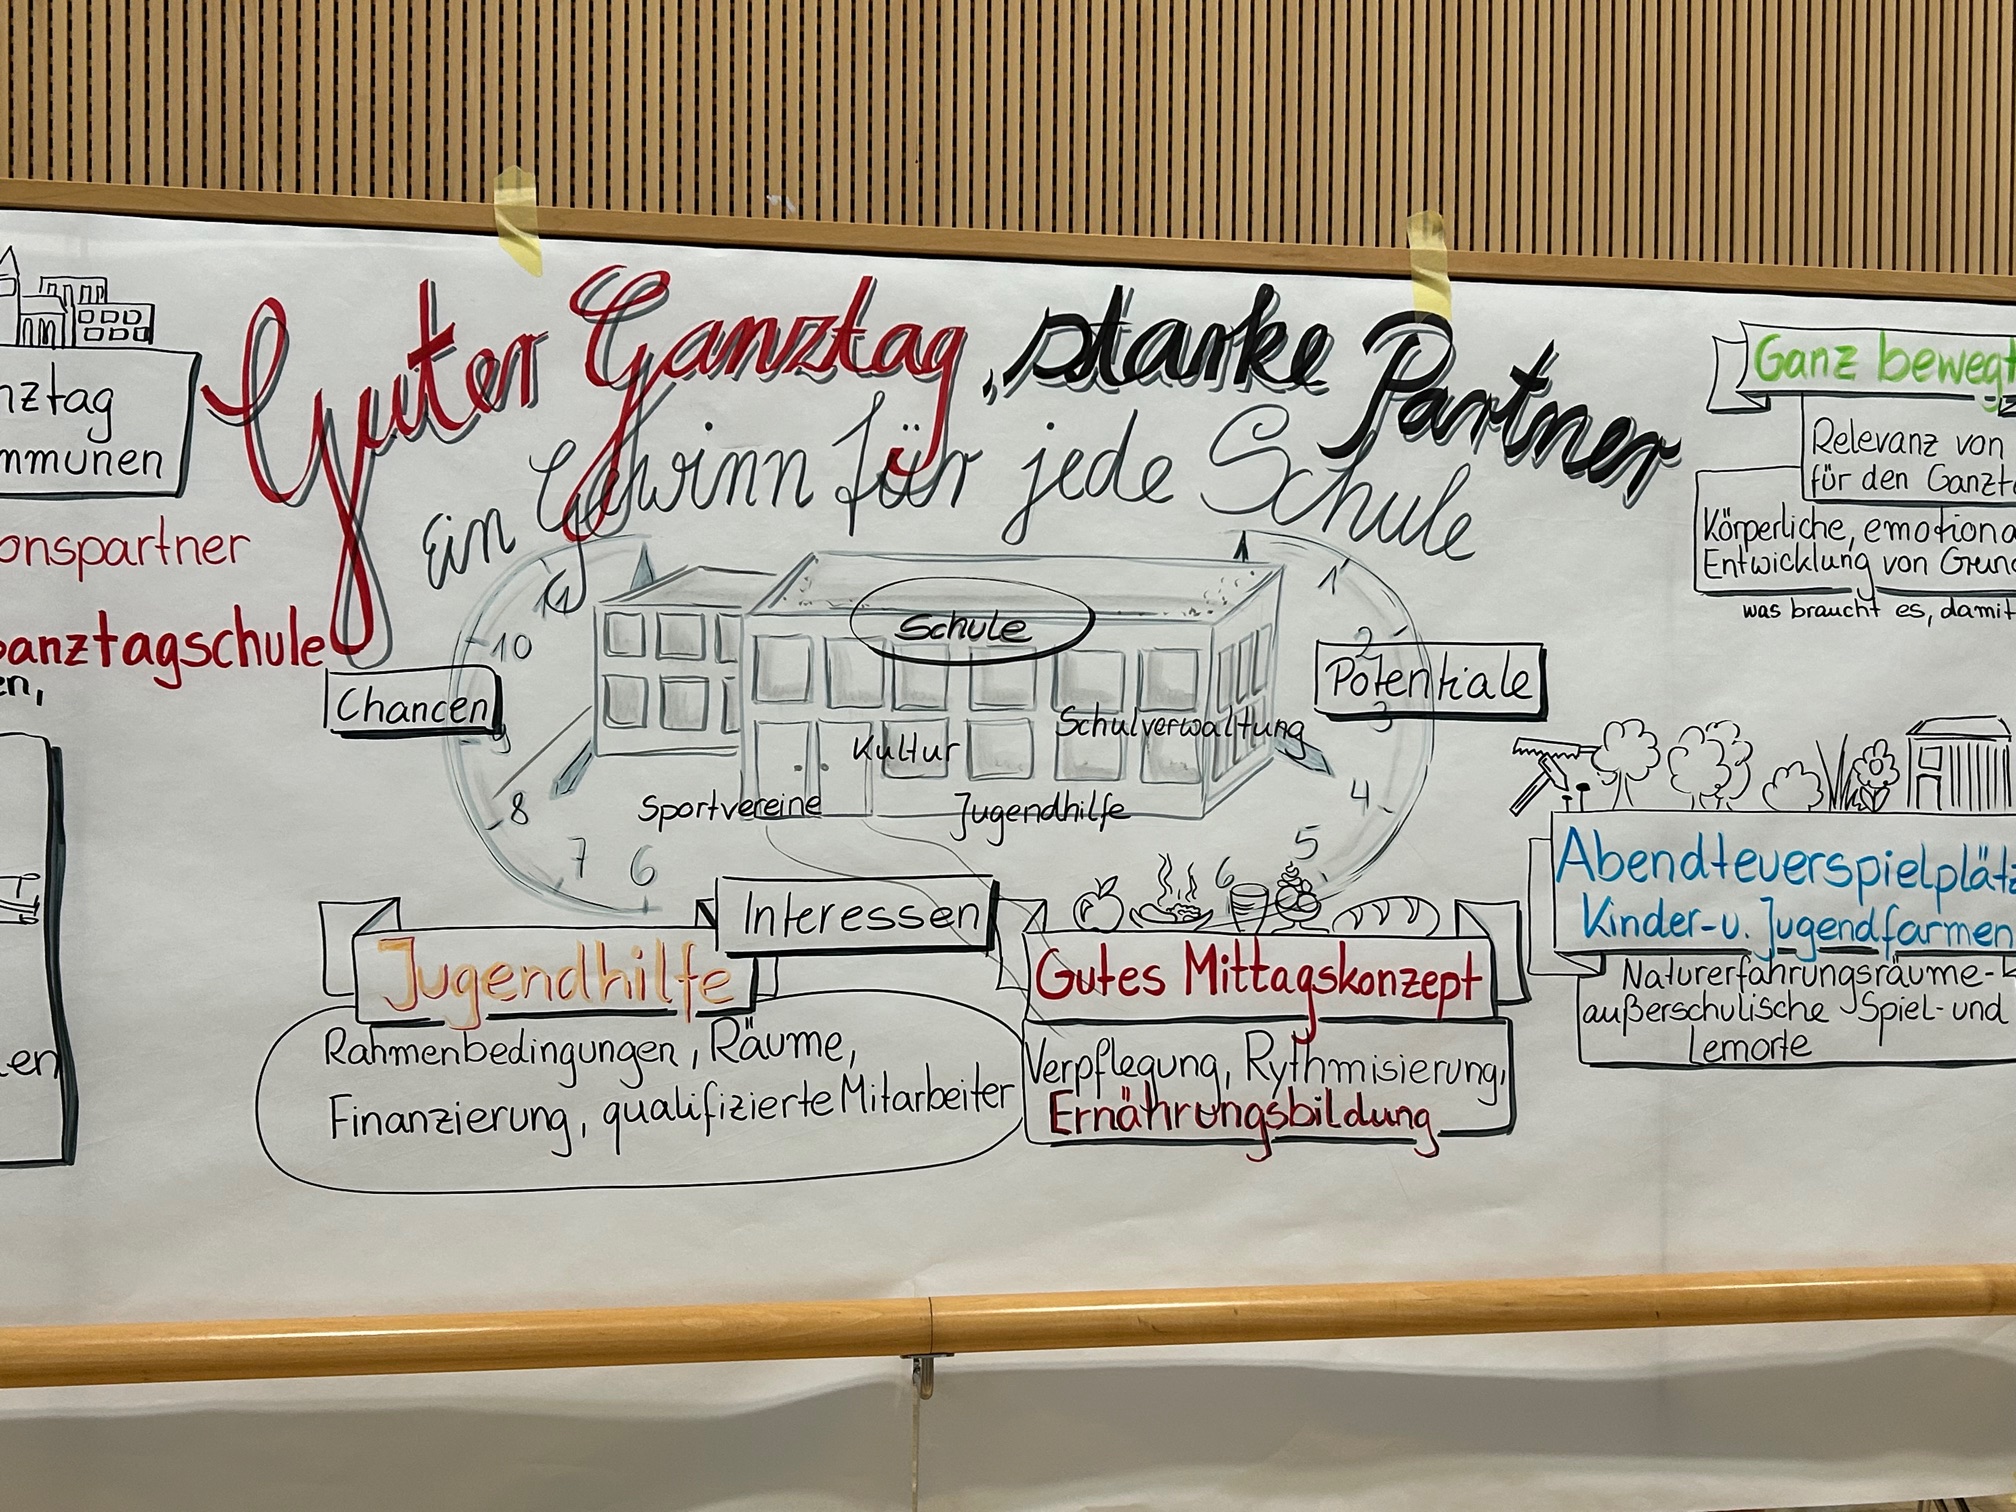 Guter Ganztag, starke Partner
Ein Gewinn für jede Schule
Ganz bewegt
Relevanz von
für den
Körperliche,
Entwicklung von
was braucht es, damit
11
10
9
8
7
6
1
2
3
4
5
6
Schule
Kultur
Schulverwaltung
Sportvereine
Jugendhilfe
Chancen
Potentiale
Interessen
Jugendhilfe
Rahmenbedingungen, Räume,
Finanzierung, qualifizierte Mitarbeiter
Gutes Mittagskonzept
Verpflegung, Rythmisierung,
Ernährungsbildung
Abendteuerspielplätz
Kinder-u. Jugendfarmen
Naturerfahrungsräume-
außerschulische Spiel-und
Lernorte
nztag
mmunen
onspartner
anztagschule
en,
en